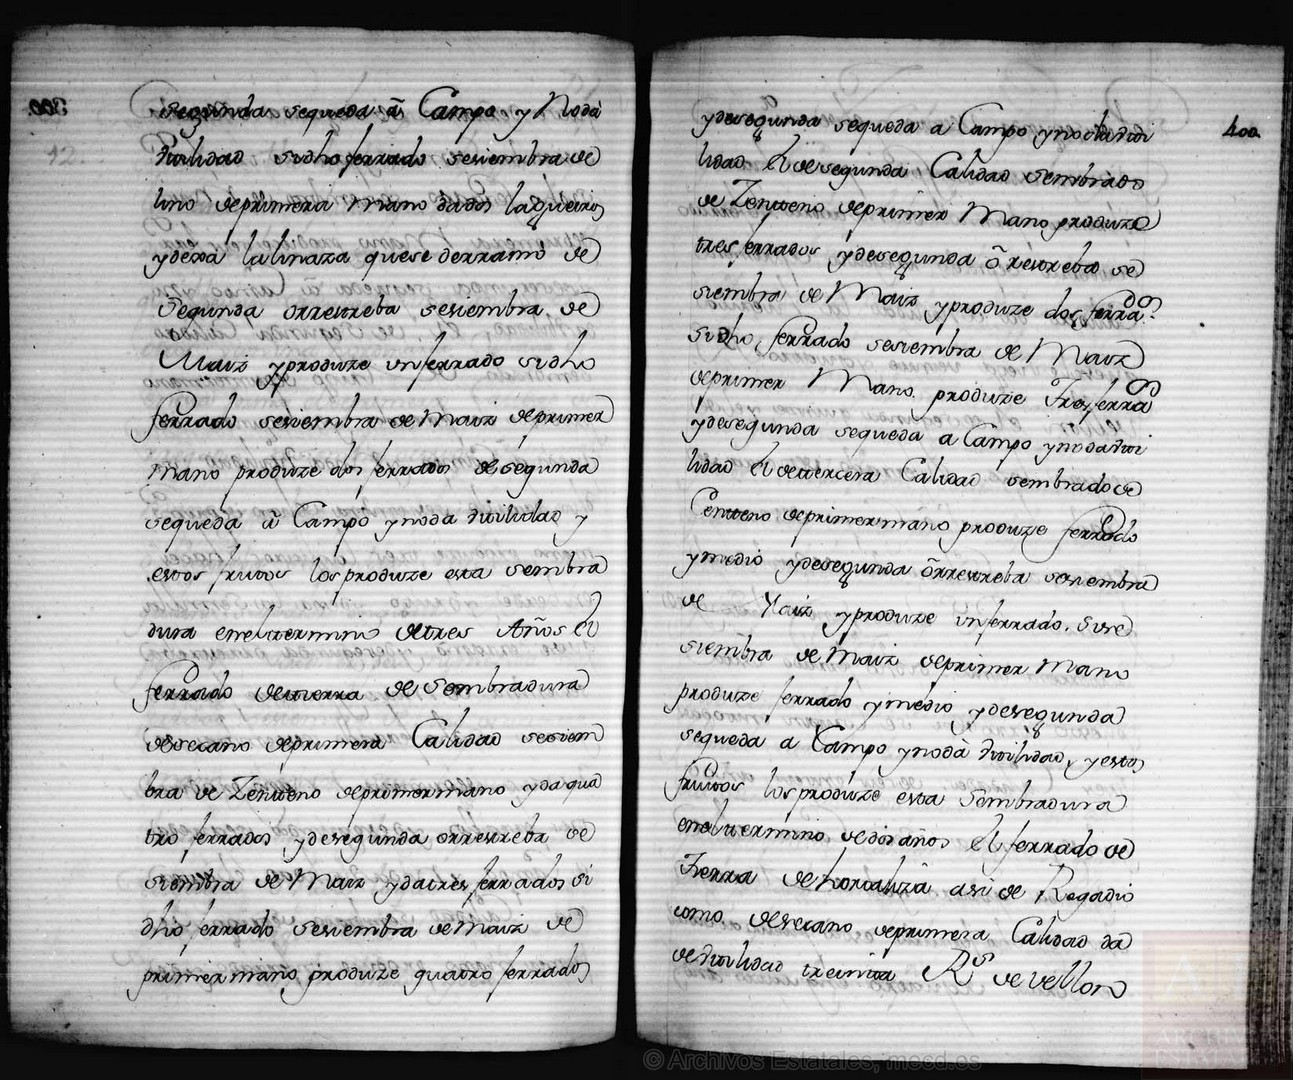 300.
12.
segunda sequeda â Campo y Nodà
Vtilidad sidho ferrado sesiembra de
lino deprimera Mano dados lagueiros
ydexa lalinaza quese derramò de
Segunda orrestreba sesiembra de
Maiz yproduze vnferrado sidho
ferrado sesiembra de Maiz deprimer
mano produze dos ferrados desegunda
sequeda â Campo ynoda vtilidad y
estos frutos losproduze esta sembra
dura eneltermino detres Años El
ferrado detierra de Sembradura
desecano deprimera Calidad sesiem
bra de Zenteno deprimermano ydaqua
tro ferrados ydesegunda orrestreba de
siembra de Maiz ydatres ferrados si
dho ferrado sesiembra deMaiz de
primermano, produze quatro ferrados
400.
ydesegunda sequeda a Campo ynodavti
lidad El desegunda Calidad sembrado
de Zenteno deprimer Mano produze
tres ferrados ydesegunda ôrrestreba se
siembra de Maiz yproduze dos ferrados
sidho, ferrado sesiembra de Maiz
deprimer Mano produze Tres ferrados
ydesegunda sequeda a Campo ynodavti
lidad El detercera Calidad sembradode
Centeno deprimermano produze ferrado
ymedio ydesegunda ôrrestreba sesiembra
de Maiz yproduze vnferrado. Sise
siembra de Maiz deprimer Mano
produze ferrado ymedio ydesegunda
sequeda a Campo ynodà vtilidad, yestos
frutos losproduze esta Sembradura
eneltermino dedos años El ferrado de
Tierra dehortaliza asi de Regadio
como desecano deprimera Calidad da
devtilidad treinta Rs de Vellon
© Archivos Estatales, mecd.es